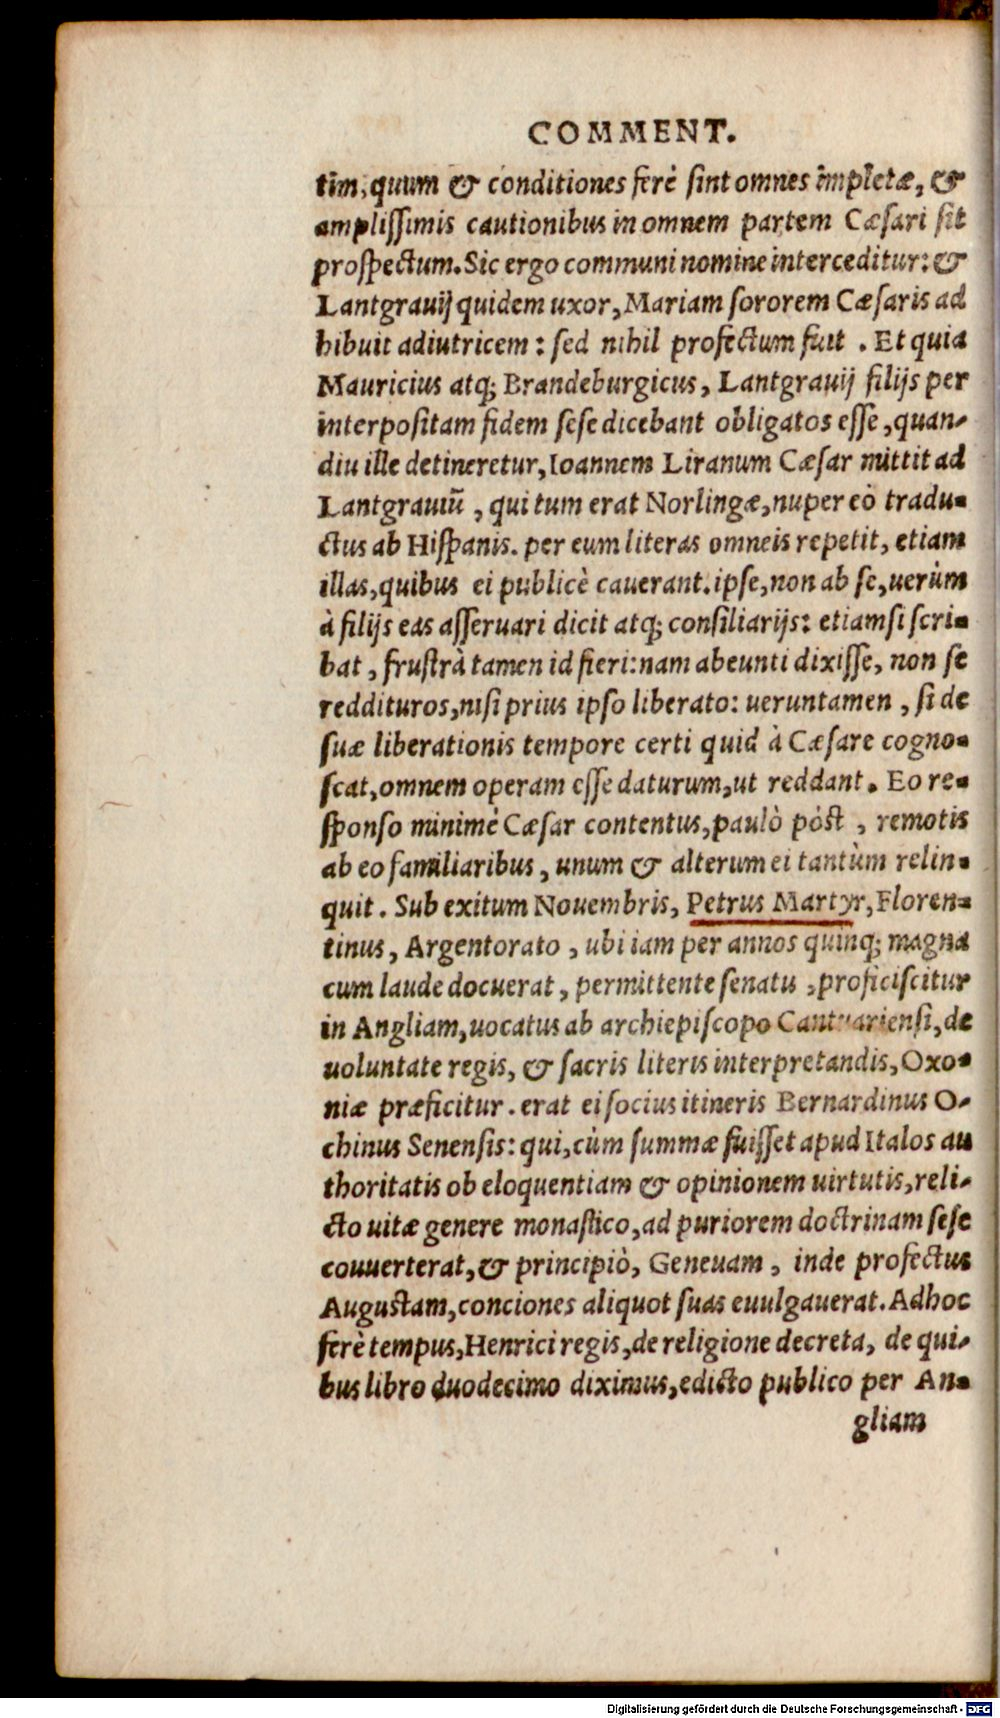 COMMENT.
tim, quum & conditiones ferè sint omnes impletæ, &
amplissimis cautionibus in omnem partem Cæsari sit
prospectum. Sic ergo communi nomine interceditur: &
Lantgrauij quidem uxor, Mariam sororem Cæsaris ad
hibuit adiutricem: sed nihil profectum fuit. Et quia
Mauricius atq; Brandeburgicus, Lantgrauij filijs per
interpositam fidem sese dicebant obligatos esse, quan-
diu ille detineretur, Ioannem Liranum Cæsar mittit ad
Lantgrauiũ, qui tum erat Norlingæ, nuper eò tradu-
ctus ab Hispanis. per eum literas omneis repetit, etiam
illas, quibus ei publicè cauerant. ipse, non ab se, uerùm
à filijs eas asseruari dicit atq; consiliarijs: etiamsi scri-
bat, frustrà tamen id fieri: nam abeunti dixisse, non se
reddituros, nisi prius ipso liberato: ueruntamen, si de
suæ liberationis tempore certi quid à Cæsare cogno-
scat, omnem operam esse daturum, ut reddant. Eo re-
sponso minimè Cæsar contentus, paulò pòst, remotis
ab eo familiaribus, unum & alterum ei tantùm relin-
quit. Sub exitum Nouembris, Petrus Martyr, Floren-
tinus, Argentorato, ubi iam per annos quinq; magna
cum laude docuerat, permittente senatu, proficiscitur
in Angliam, uocatus ab archiepiscopo Cantuariensi, de
uoluntate regis, & sacris literis interpretandis, Oxo-
niæ præficitur. erat ei socius itineris Bernardinus O-
chinus Senensis: qui, cùm summæ fuisset apud Italos au
thoritatis ob eloquentiam & opinionem uirtutis, reli-
cto uitæ genere monastico, ad puriorem doctrinam sese
couuerterat, & principiò, Geneuam, inde profectus
Augustam, conciones aliquot suas euulgauerat. Ad hoc
ferè tempus, Henrici regis, de religione decreta, de qui-
bus libro duodecimo diximus, edicto publico per An-
gliam
Digitalisierung gefördert durch die Deutsche Forschungsgemeinschaft - DFG